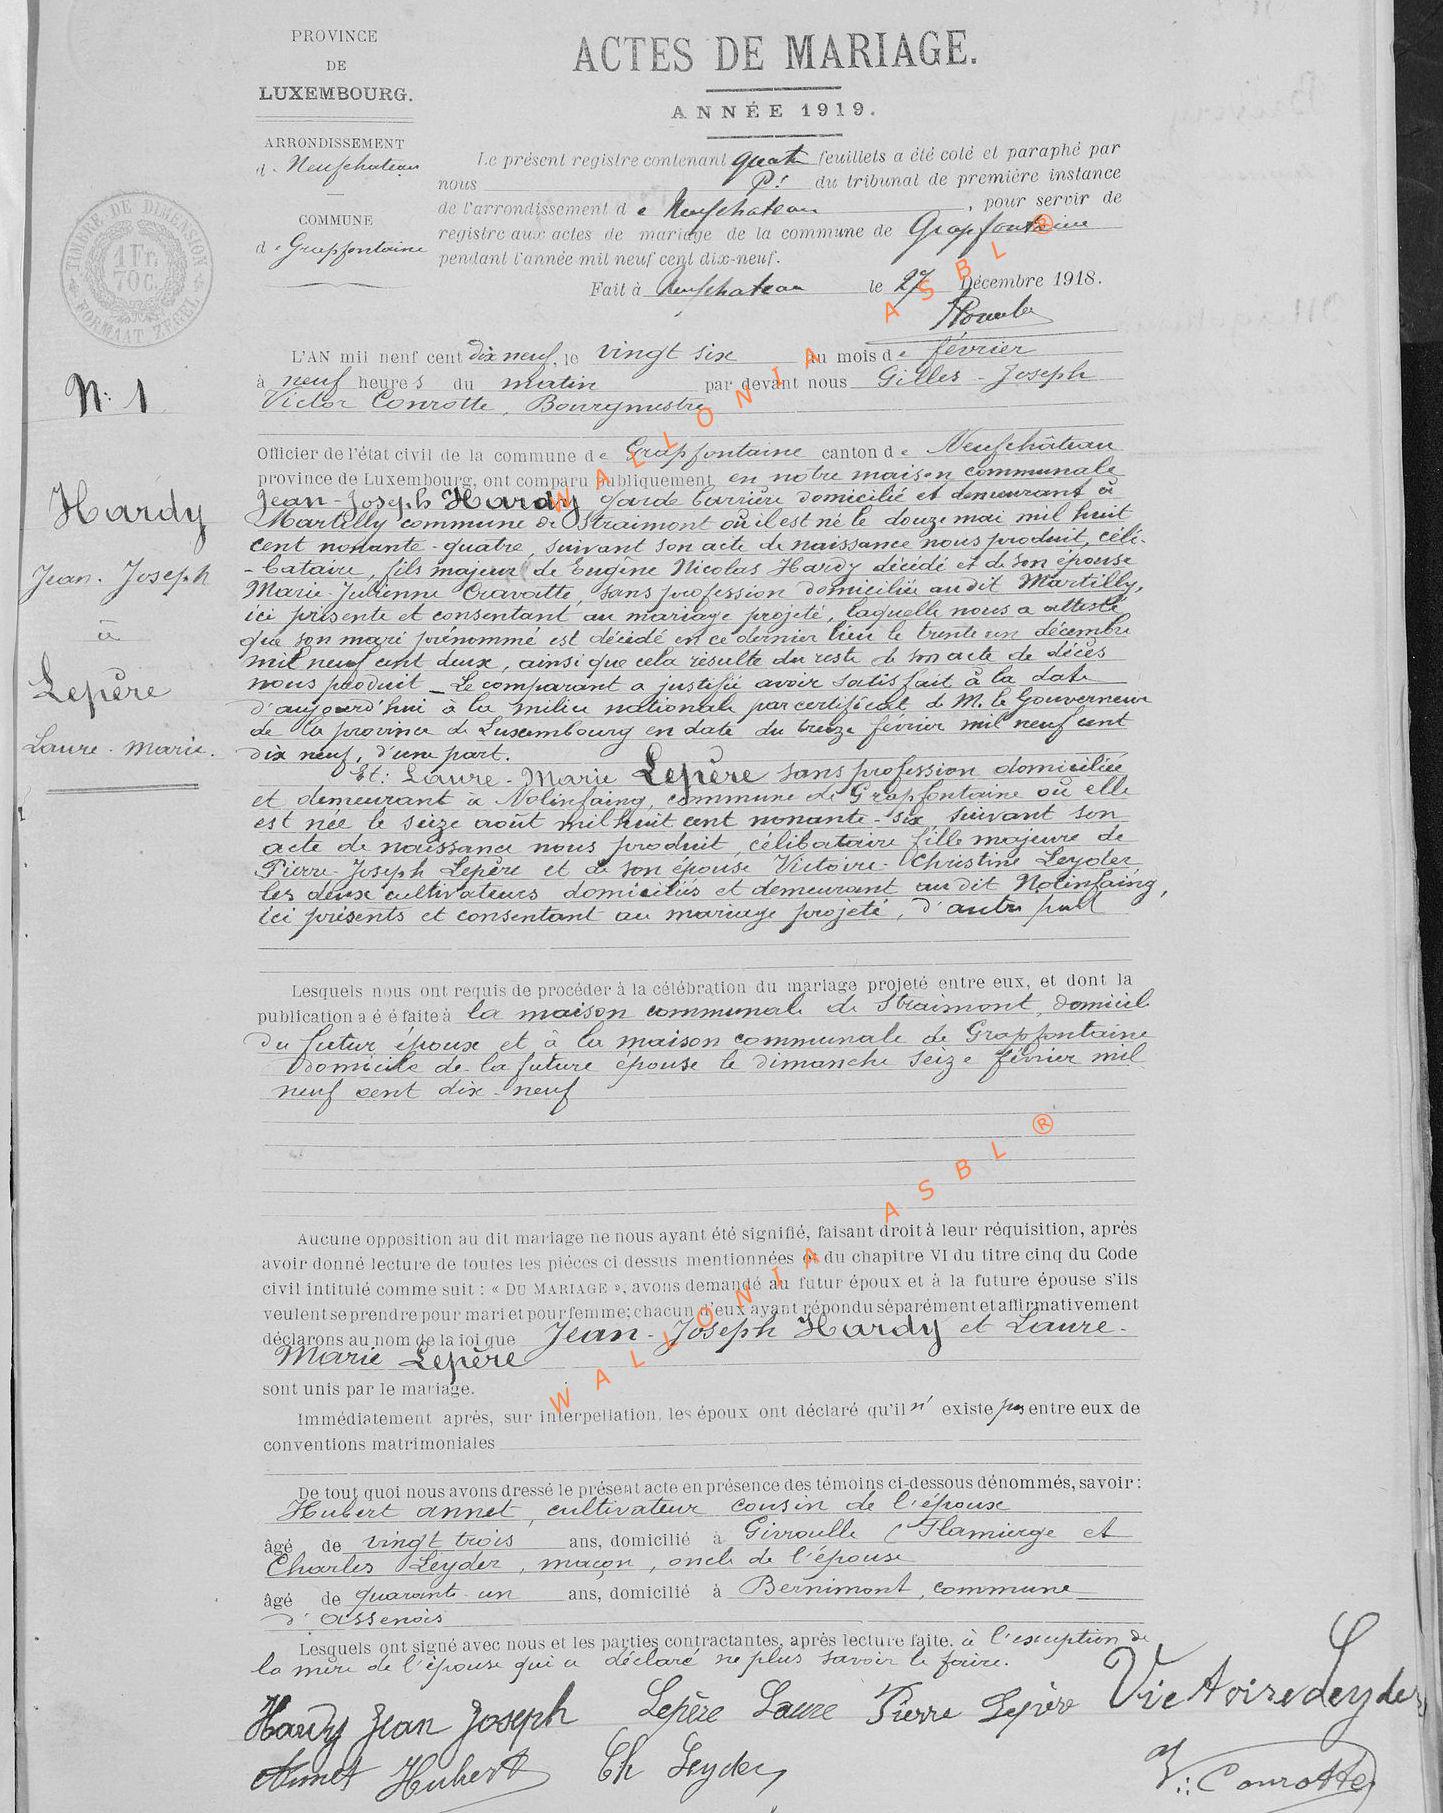 PROVINCE
DE
LUXEMBOURG.
ARRONDISSEMENT
de Neufchateau
COMMUNE
de Grapfontaine
TIMBRE DE DIMENSION
1 Fr.
70 C.
FORMAAT ZEGEL
ACTES DE MARIAGE.
ANNÉE 1919.
Le présent registre contenant quatre feuillets a été coté et paraphé par
nous Pt du tribunal de première instance
de l'arrondissement de Neufchateau, pour servir de
registre aux actes de mariage de la commune de Grapfontaine
pendant l'année mil neuf cent dix-neuf.
Fait à Neufchateau le 27 Décembre 1918.
N: 1
Hardy
Jean-Joseph
à
Lepère
Laure-Marie.
L'AN mil neuf cent dix neuf, le vingt six du mois de février
à neuf heures du matin par devant nous Gilles-Joseph
Victor Conrotte, Bourgmestre
Officier de l'état civil de la commune de Grapfontaine canton de Neufchâteau
province de Luxembourg, ont comparu publiquement en notre maison communale
Jean-Joseph Hardy garde barrière domicilié et demeurant à
Martilly commune de Straimont où il est né le douze mai mil huit
cent nonante-quatre, suivant son acte de naissance nous produit, céli-
-bataire, fils majeur de Eugène Nicolas Hardy décédé et de son épouse
Marie-Julienne Cravatte, sans profession domiciliée au dit Martilly,
ici présente et consentant au mariage projeté, laquelle nous a attesté
que son mari prénommé est décédé en ce dernier lieu le trente un décembre
mil neuf cent deux, ainsi que cela résulte du reste de son acte de décès
nous produit _ Le comparant a justifié avoir satisfait à la date
d'aujourd'hui à la milice nationale par certificat de M. le Gouverneur
de la province de Luxembourg en date du treize février mil neuf cent
dix neuf, d'une part.
Et: Laure-Marie Lepère sans profession domiciliée
et demeurant à Nolinfaing, commune de Grapfontaine où elle
est née le seize août mil huit cent nonante-six suivant son
acte de naissance nous produit, célibataire fille majeure de
Pierre-Joseph Lepère et de son épouse Victoire-Christine Leyder
les deux cultivateurs domiciliés et demeurant au dit Nolinfaing,
ici présents et consentant au mariage projeté, d'autre part
Lesquels nous ont requis de procéder à la célébration du mariage projeté entre eux, et dont la
publication a é é faite à la maison communale de Straimont, domicile
du futur époux et à la maison communale de Grapfontaine
domicile de la future épouse le dimanche seize février mil
neuf cent dix-neuf
Aucune opposition au dit mariage ne nous ayant été signifié, faisant droit à leur réquisition, après
avoir donné lecture de toutes les pièces ci dessus mentionnées et du chapitre VI du titre cinq du Code
civil intitulé comme suit : « DU MARIAGE », avons demandé au futur époux et à la future épouse s'ils
veulent se prendre pour mari et pour femme; chacun d'eux ayant répondu séparément et affirmativement
déclarons au nom de la loi que Jean-Joseph Hardy et Laure-
Marie Lepère
sont unis par le mariage.
Immédiatement après, sur interpellation, les époux ont déclaré qu'il n' existe pas entre eux de
conventions matrimoniales
De tout quoi nous avons dressé le présent acte en présence des témoins ci-dessous dénommés, savoir :
Hubert Annet, cultivateur cousin de l'époux
âgé de vingt trois ans, domicilié à Givroulle (Flamierge et
Charles Leyder, maçon, oncle de l'épouse
âgé de quarante-un ans, domicilié à Bernimont, commune
d'Assenois
Lesquels ont signé avec nous et les parties contractantes, après lecture faite, à l'exception de
la mère de l'épouse qui a déclaré ne plus savoir le faire.
Hardy Jean Joseph Lepère Laure Pierre Lepère Victoire Leyder
Annet Hubert Ch Leyder V: Conrotte
WALLONIA ASBL ®
WALLONIA ASBL ®